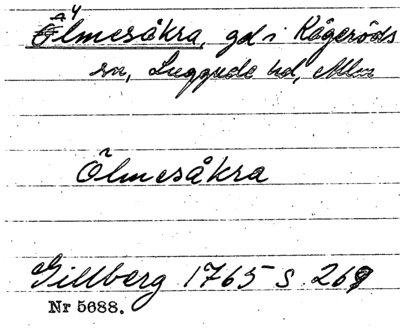 Ölmesåkra, gd i Kågeröds
sn, Luggude hd, Mlm
Ölmesåkra
Gillberg 1765 s. 269
Nr 5688.